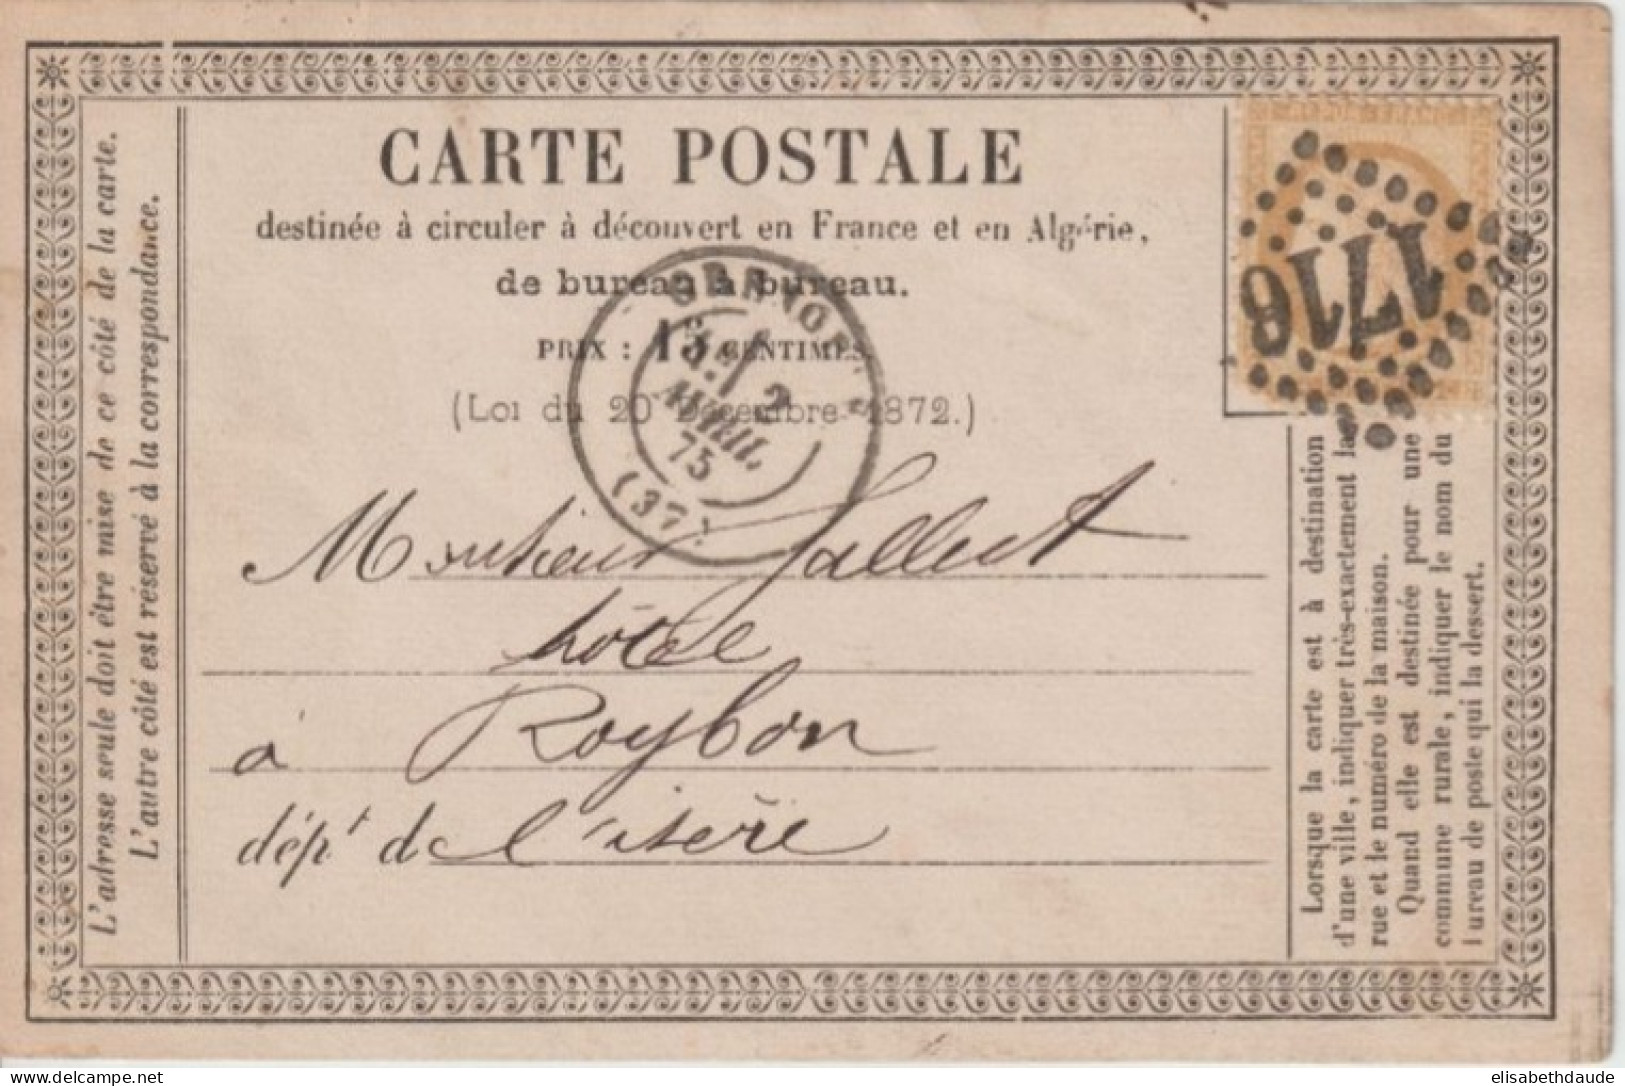 CARTE POSTALE
destinée à circuler à découvert en France et en Algérie,
de bureau à bureau.
PRIX : 15 CENTIMES.
(Loi du 20 Décembre 1872.)
L'adresse seule doit être mise de ce côté de la carte.
L'autre côté est réservé à la correspondance.
REPUB FRANC
1716
GRENOBLE
2
AVRIL
75
(37)
Monsieur
hôtel
à Roybon
dépt de l'isère
Lorsque la carte est à destination
d'une ville, indiquer très-exactement la
rue et le numéro de la maison.
Quand elle est destinée pour une
commune rurale, indiquer le nom du
bureau de poste qui la dessert.
delcampe.net
elisabethdaude